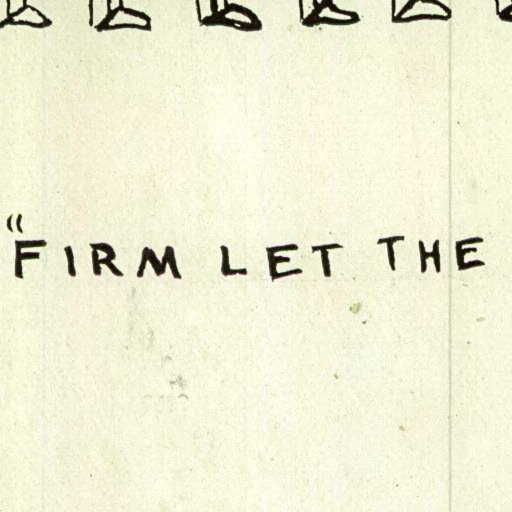 “FIRM LET THE